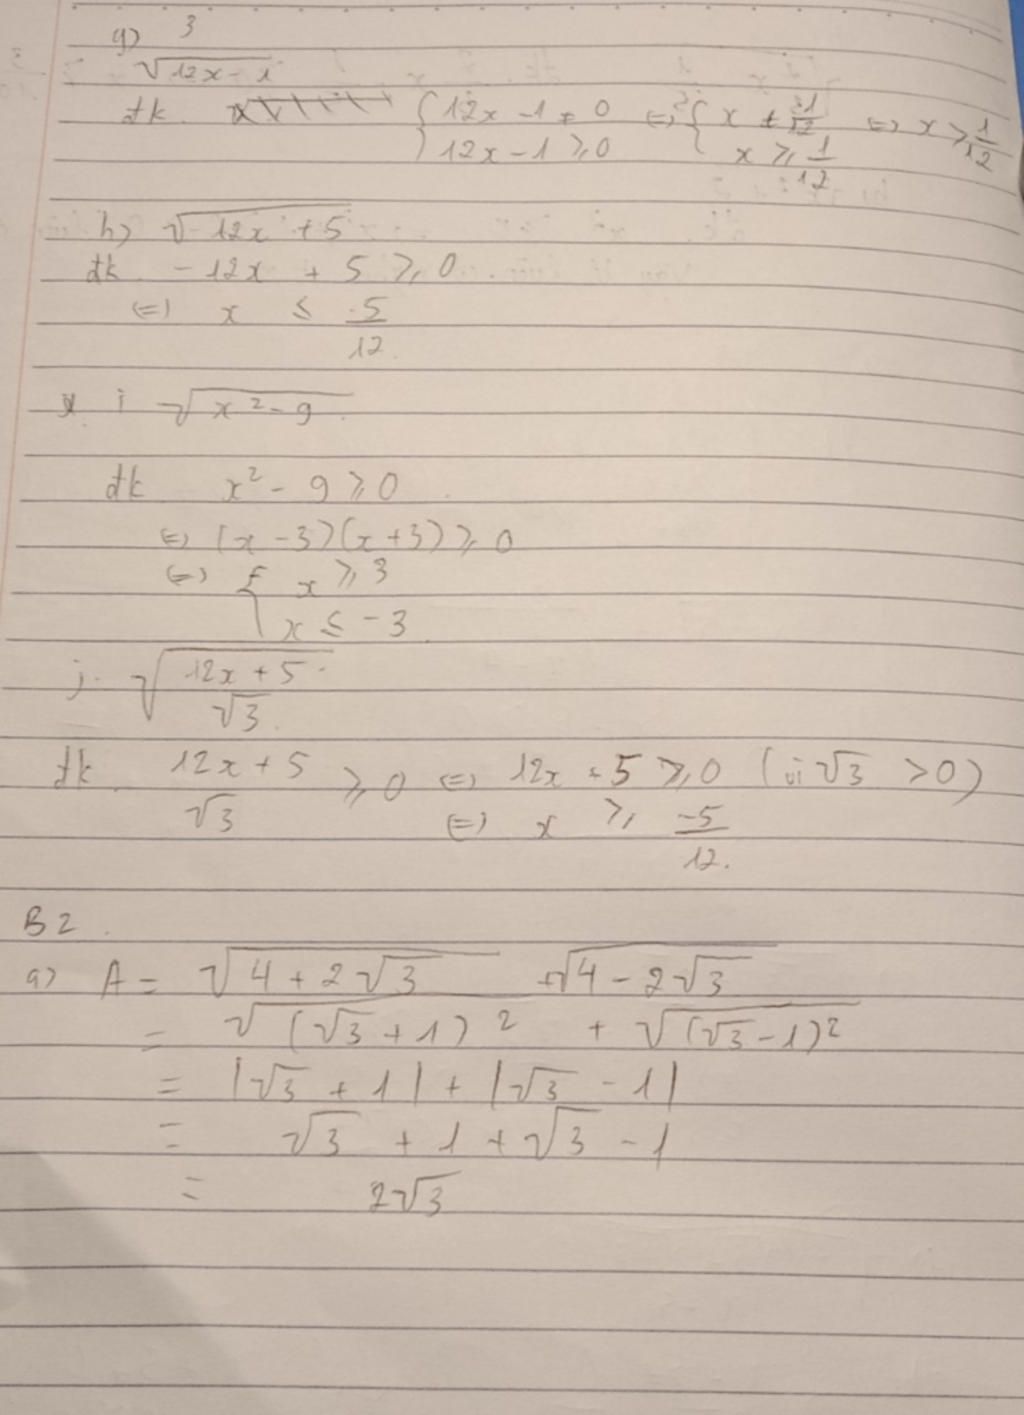 g) 3
√12x-1
đk. { 12x - 1 ≠ 0 ⇔ { x ≠ 1/12 ⇔ x > 1/12
12x - 1 ≥ 0 x ≥ 1/12
h) √-12x + 5
đk - 12x + 5 ≥ 0
⇔ x ≤ 5/12
i √x² - 9
đk x² - 9 ≥ 0
⇔ (x - 3)(x + 3) ≥ 0
⇔ { x ≥ 3
x ≤ -3
j. √(12x + 5)/√3
đk (12x + 5)/√3 ≥ 0 ⇔ 12x + 5 ≥ 0 (vì √3 > 0)
⇔ x ≥ -5/12.
B2.
a) A = √4 + 2√3 + √4 - 2√3
= √(√3 + 1)² + √(√3 - 1)²
= |√3 + 1| + |√3 - 1|
= √3 + 1 + √3 - 1
= 2√3